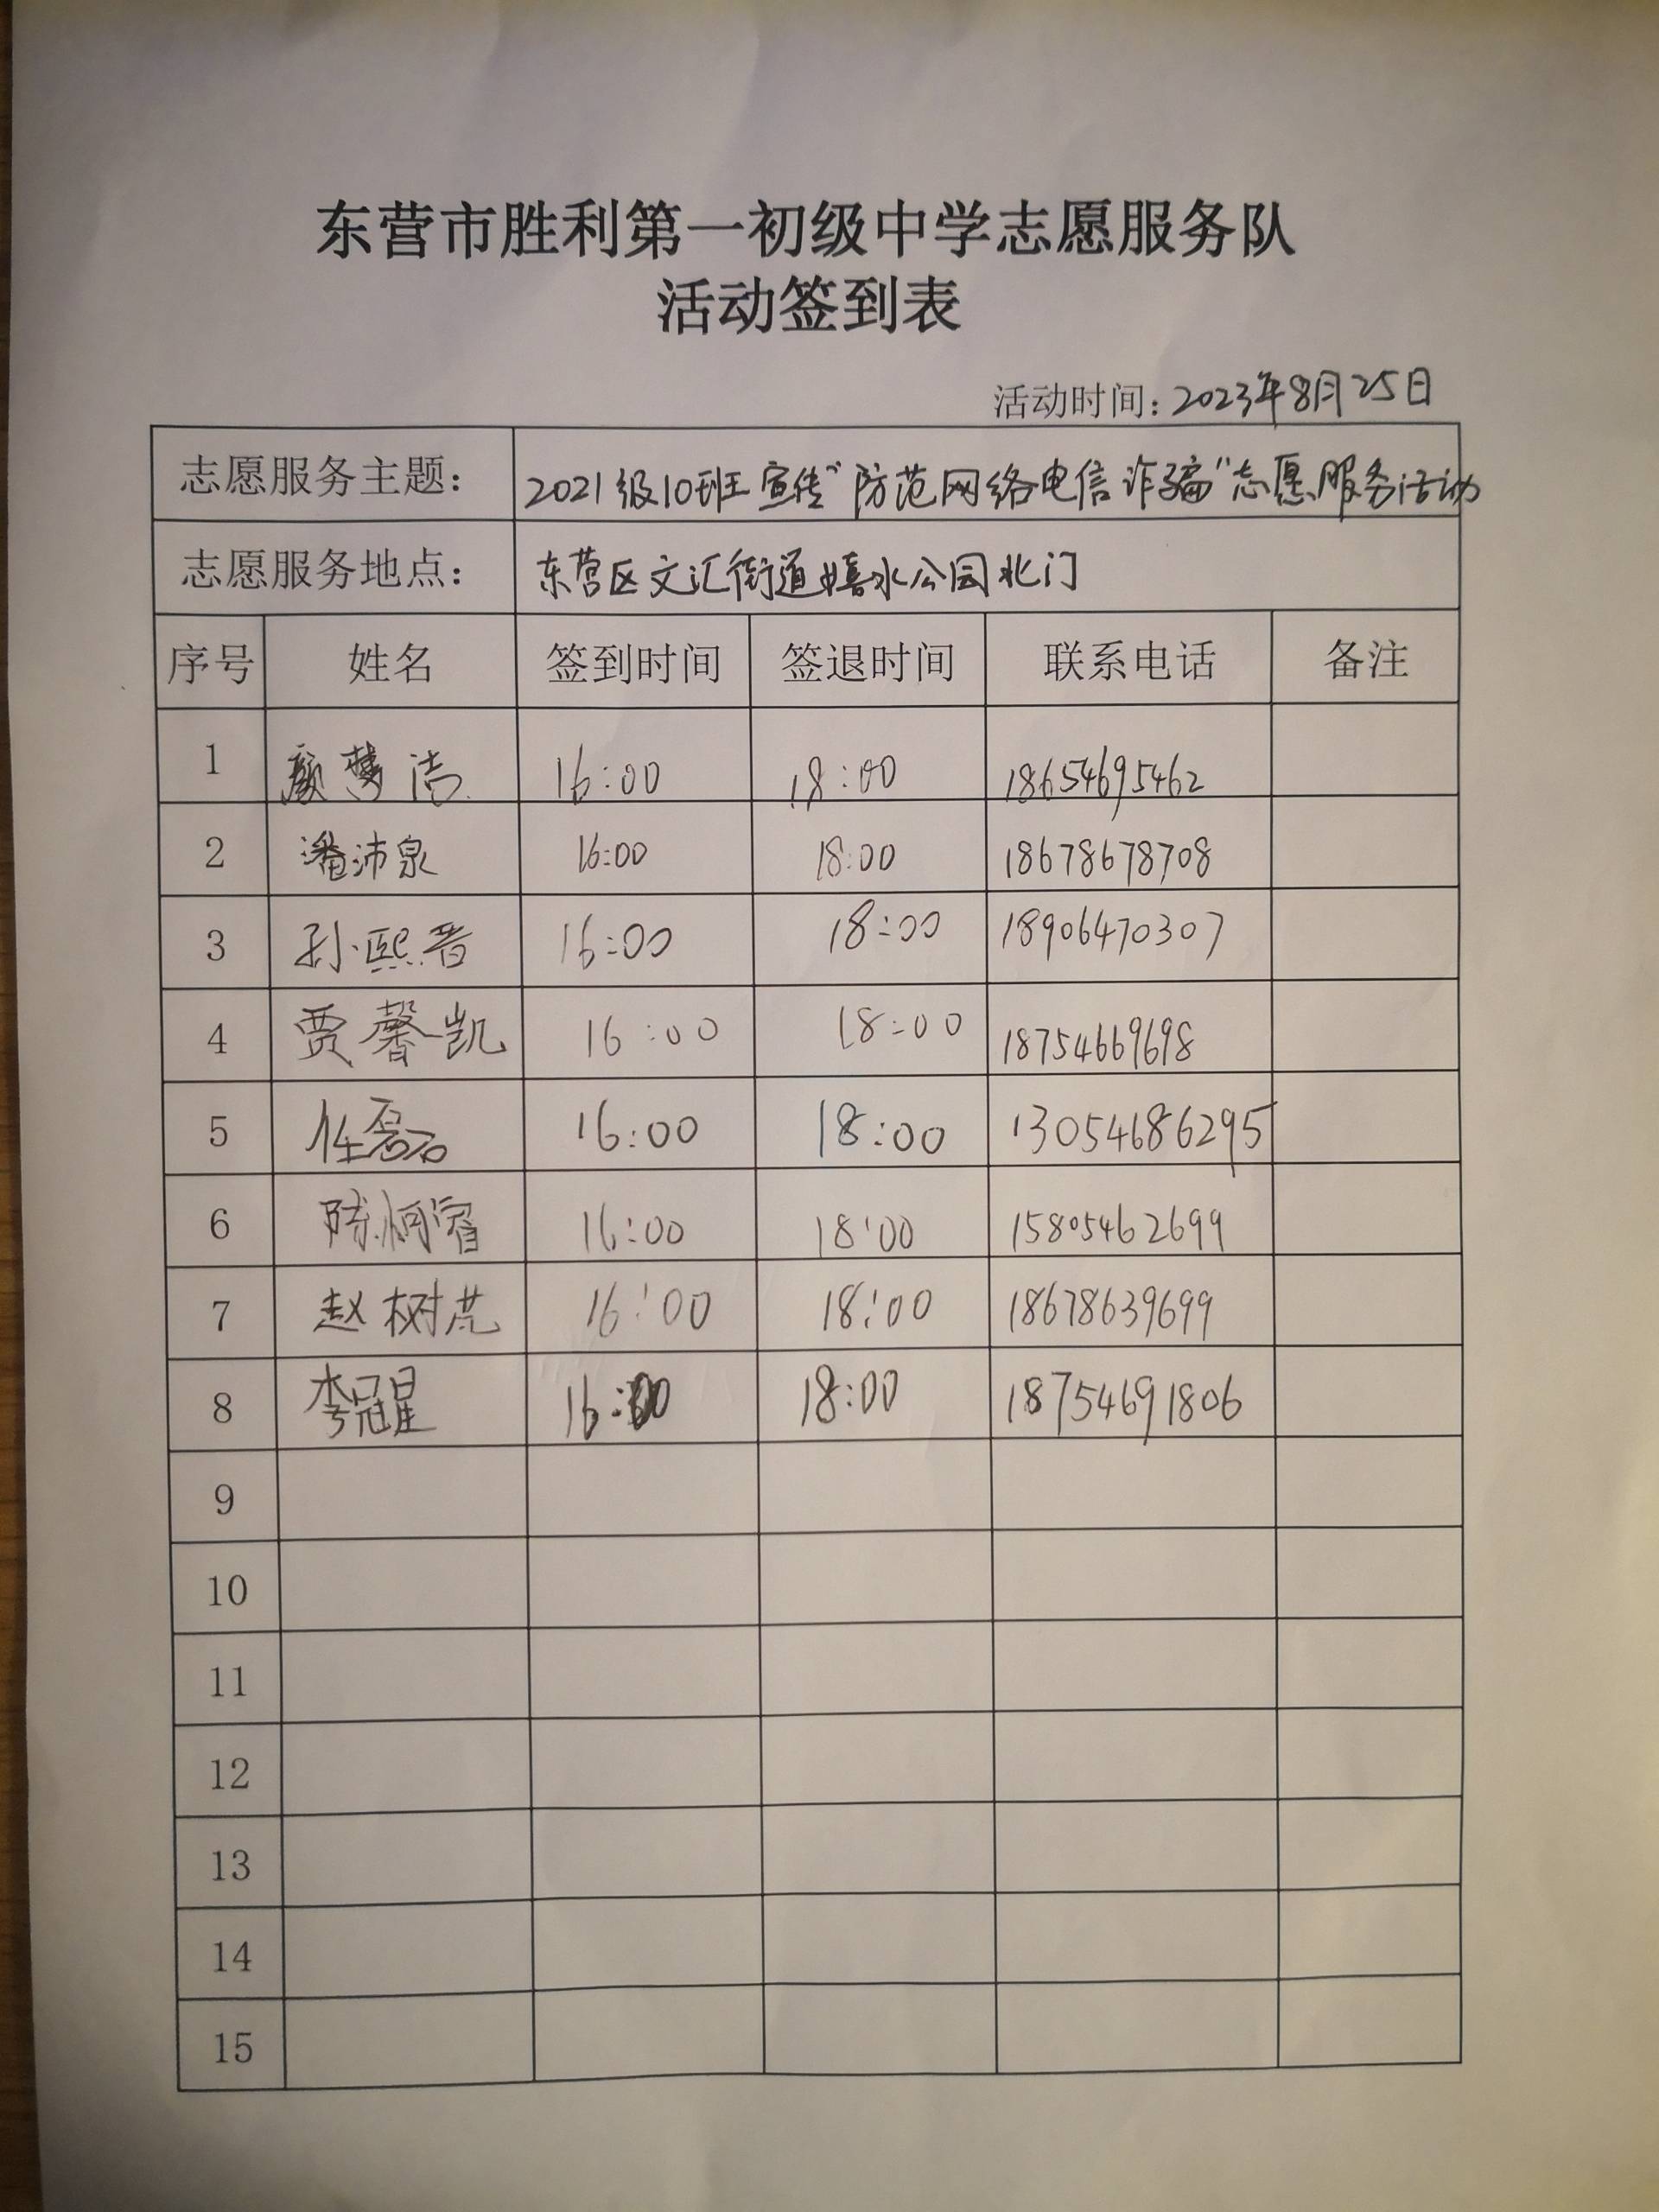 东营市胜利第一初级中学志愿服务队
活动签到表
活动时间：2023年8月25日
志愿服务主题： 2021级10班宣传“防范网络电信诈骗”志愿服务活动
志愿服务地点： 东营区文汇街道嬉水公园北门
序号 姓名 签到时间 签退时间 联系电话 备注
1 颜梦洁 16:00 18:00 18654695462
2 潘沛泉 16:00 18:00 18678678708
3 孙熙晋 16:00 18:00 18906470307
4 贾馨凯 16:00 18:00 18754669698
5 任磊 16:00 18:00 13054686295
6 陈炳睿 16:00 18:00 15805462699
7 赵树 16:00 18:00 18678639699
8 李冠星 16:00 18:00 18754691806
9
10
11
12
13
14
15